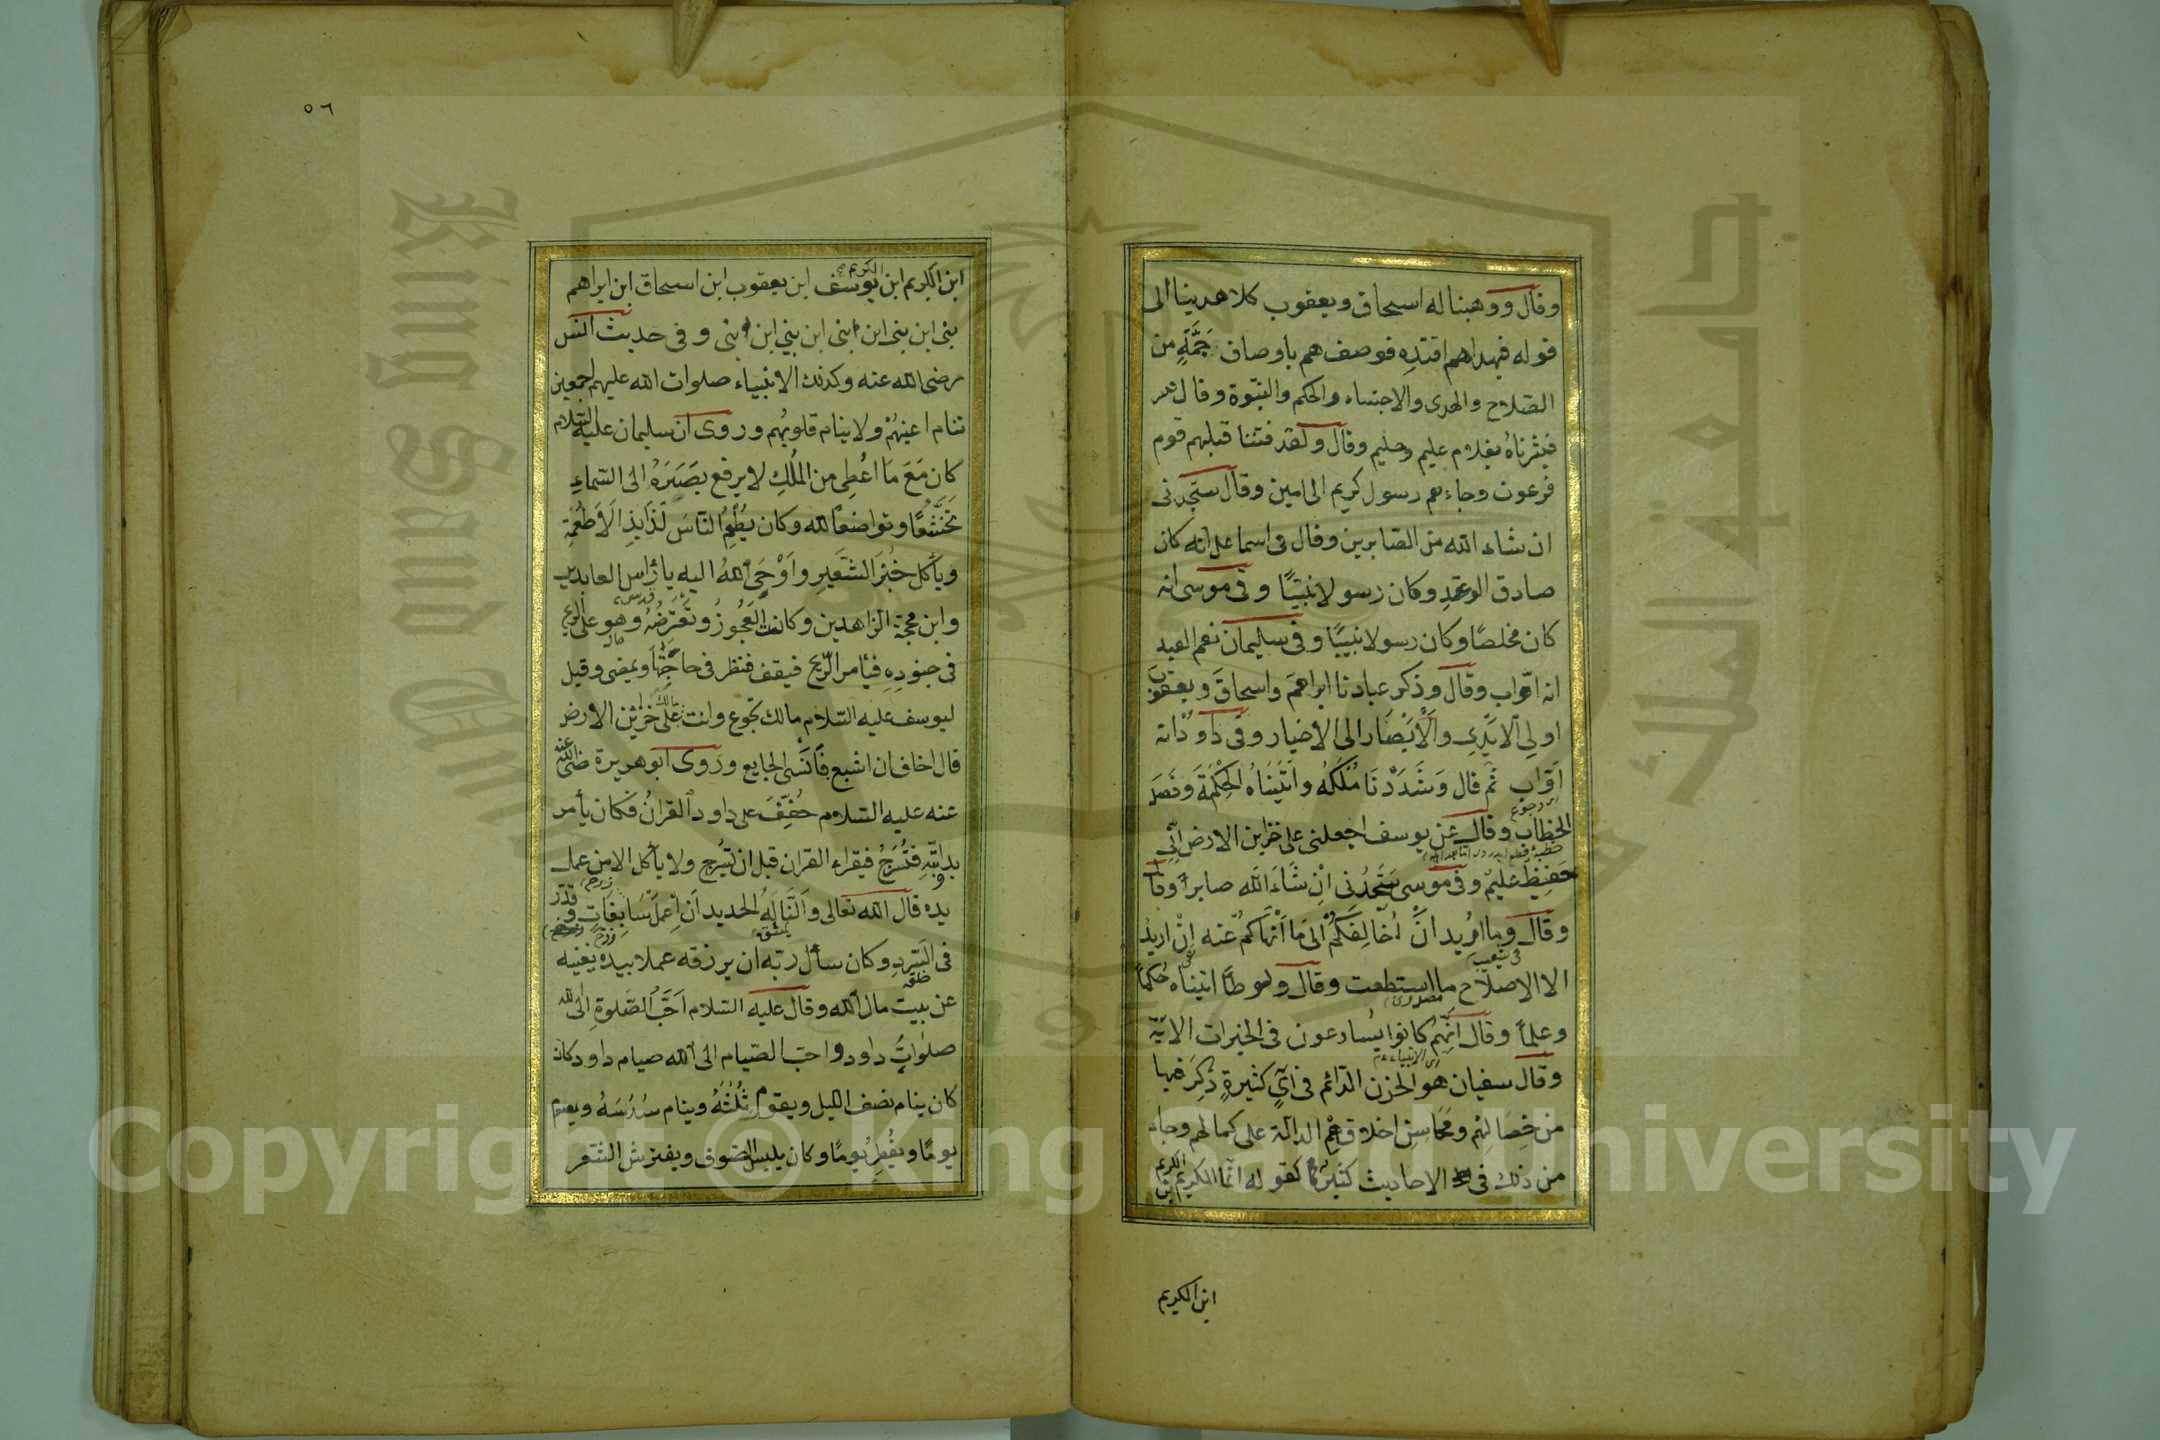 وقال ووهبنا له اسحاق ويعقوب كلا هدينا الى
قوله فبهداهم اقتده فوصفهم باوصاف جَمَّةٍ من
الصّلاح والهدى والاجتباء والحكم والنبّوة وقال
فبشرناه بغلام عليم وحليم وقال ولقد فتنا قبلهم قوم
فرعون وجاءهم رسول كريم الى امين وقال ستجدنى
ان شاء الله من الصّابرين وقال فى اسماعيل انه كان
صادق الوعدِ وكان رسولا نبيًّا وفى موسى انه
كان مخلصًا وكان رسولا نبيًّا وفى سليمان نعم العبد
انه اوّاب وقال وذكر عبادنا ابراهيمَ واسحاقَ ويعقوبَ
اولى الايدِى والابْصَار الى الاخيار وفى داود انه
اَوّاب ثم قال وَشَدَدْنَا مُلْكَهُ وآتَيْنَاهُ الحِكْمَةَ وفَصْلَ
الخِطَابِ وقال عن يوسف اجعلنى على خزاين الارض اِنِّى
حَفِيظٌ عَليمٌ وفى موسى سَتَجدُنى اِنْ شَاءَ الله صابراً وقال
وقال وما اريد انْ اُخَالِفَكُمْ الى مَا اَنْهَاكُمْ عنه اِنْ اريدُ
الا الاصلاح ما استطعت وقال ولوطًا اتيناه حُكمًا
وعلماً وقال انّهم كانوا يسارعون فى الخيرات الاية
وقال سفيان هو الحزن الدّائم فى آىٍ كثيرةٍ ذُكِرَ فيها
من خِصَالِهم ومَحَاسِن اخلاقهم الدالّة على كمالهم وجاء
من ذلك فى الاحاديث كثير كقوله انّما الكريم ابن الكريم
ابن الكريم
٥٦
ابن الكريم ابن الكريم يوسف ابن يعقوب ابن اسحاق ابن ابراهم
نبى ابن نبى ابن نبى ابن نبى وفى حديث انس
رضى الله عنه وكذلك الانبياء صلوات الله عليهم اجمعين
تنام اعينهُمْ ولا ينام قلوبهُم وروى ان سليمان عليه السّلام
كان مَعَ مَا اعُطِى من المُلكِ لا يرفع بَصَرَهُ الى السّماءِ
تَخَشُّعًا وتواضعاً لله وكان يُطْعِمُ النّاسَ لَذَايِذَ الاَطْعِمَةِ
وياكل خُبْزَ الشَعَيرِ واَوْحَى اللهُ اليه يا رأس العابدين
وابن محجّة الزّاهدين وكانت العَجُوزُ وتَعْتَرِضُهُ وهو على الريح
فى جنودِهِ فيأمر الرّيح فيقف فنظر فى حاجَتِهَا ويمضى وقيل
ليوسف عليه السّلام مالك تجوع وانت على خزائن الارض
قال اخاف ان اشبع فَاَنْسَى الجايع وروى ابو هريرة رضى الله عنه
عنه عليه السّلام خُفِّفَ على داود القرانُ فكان يأمر
بدابّتهِ فتُسْرَجُ فيقراء القران قبل ان تُسْرج ولا ياكل الا من عمل
يده قال الله تعالى وَاَلَنَّا لَهُ الحديد اَنِ اعْملْ سَابِغَاتٍ وَقَدِّر
فى السّردِ وكان سأل ربّه ان يرزقه عملا بيده يغنيه
عن بيت مال الله وقال عليه السّلام اَحَبُّ الصَّلوةِ الى الله
صلواتُ داود واحبّ الصّيام الى الله صيام داود كان
كان ينام نصف الليل ويقوم ثُلُثَهُ وينام سُدُسَهُ ويصوم
يومًا ويفُطِرُ يومًا وكان يلبس الصّوف ويفترش الشعر
King Saud University
جامعة الملك
1957
Copyright © King Saud University